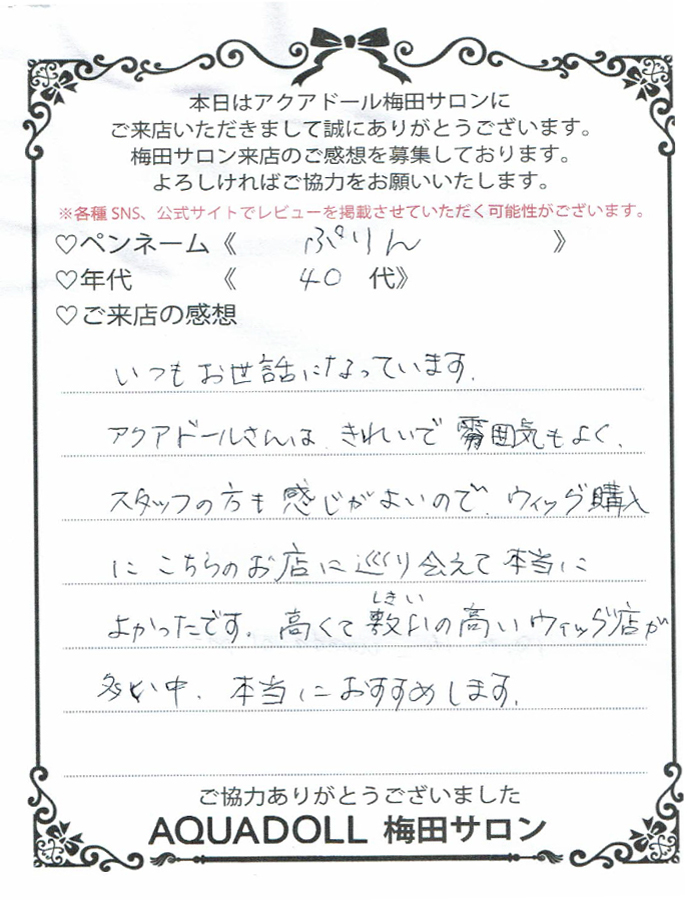 本日はアクアドール梅田サロンに
ご来店いただきまして誠にありがとうございます。
梅田サロン来店のご感想を募集しております。
よろしければご協力をお願いいたします。
※各種SNS、公式サイトでレビューを掲載させていただく可能性がございます。
♡ペンネーム《 ぷりん 》
♡年代 《 40 代》
♡ご来店の感想
いつもお世話になっています.
アクアドールさんは、きれいで雰囲気もよく、
スタッフの方も感じがよいので、ウィッグ購入
にこちらのお店に巡り会えて本当に
しきい
よかったです. 高くて敷よいの高いウィッグ店が
多い中、本当におすすめします.
ご協力ありがとうございました
AQUADOLL 梅田サロン